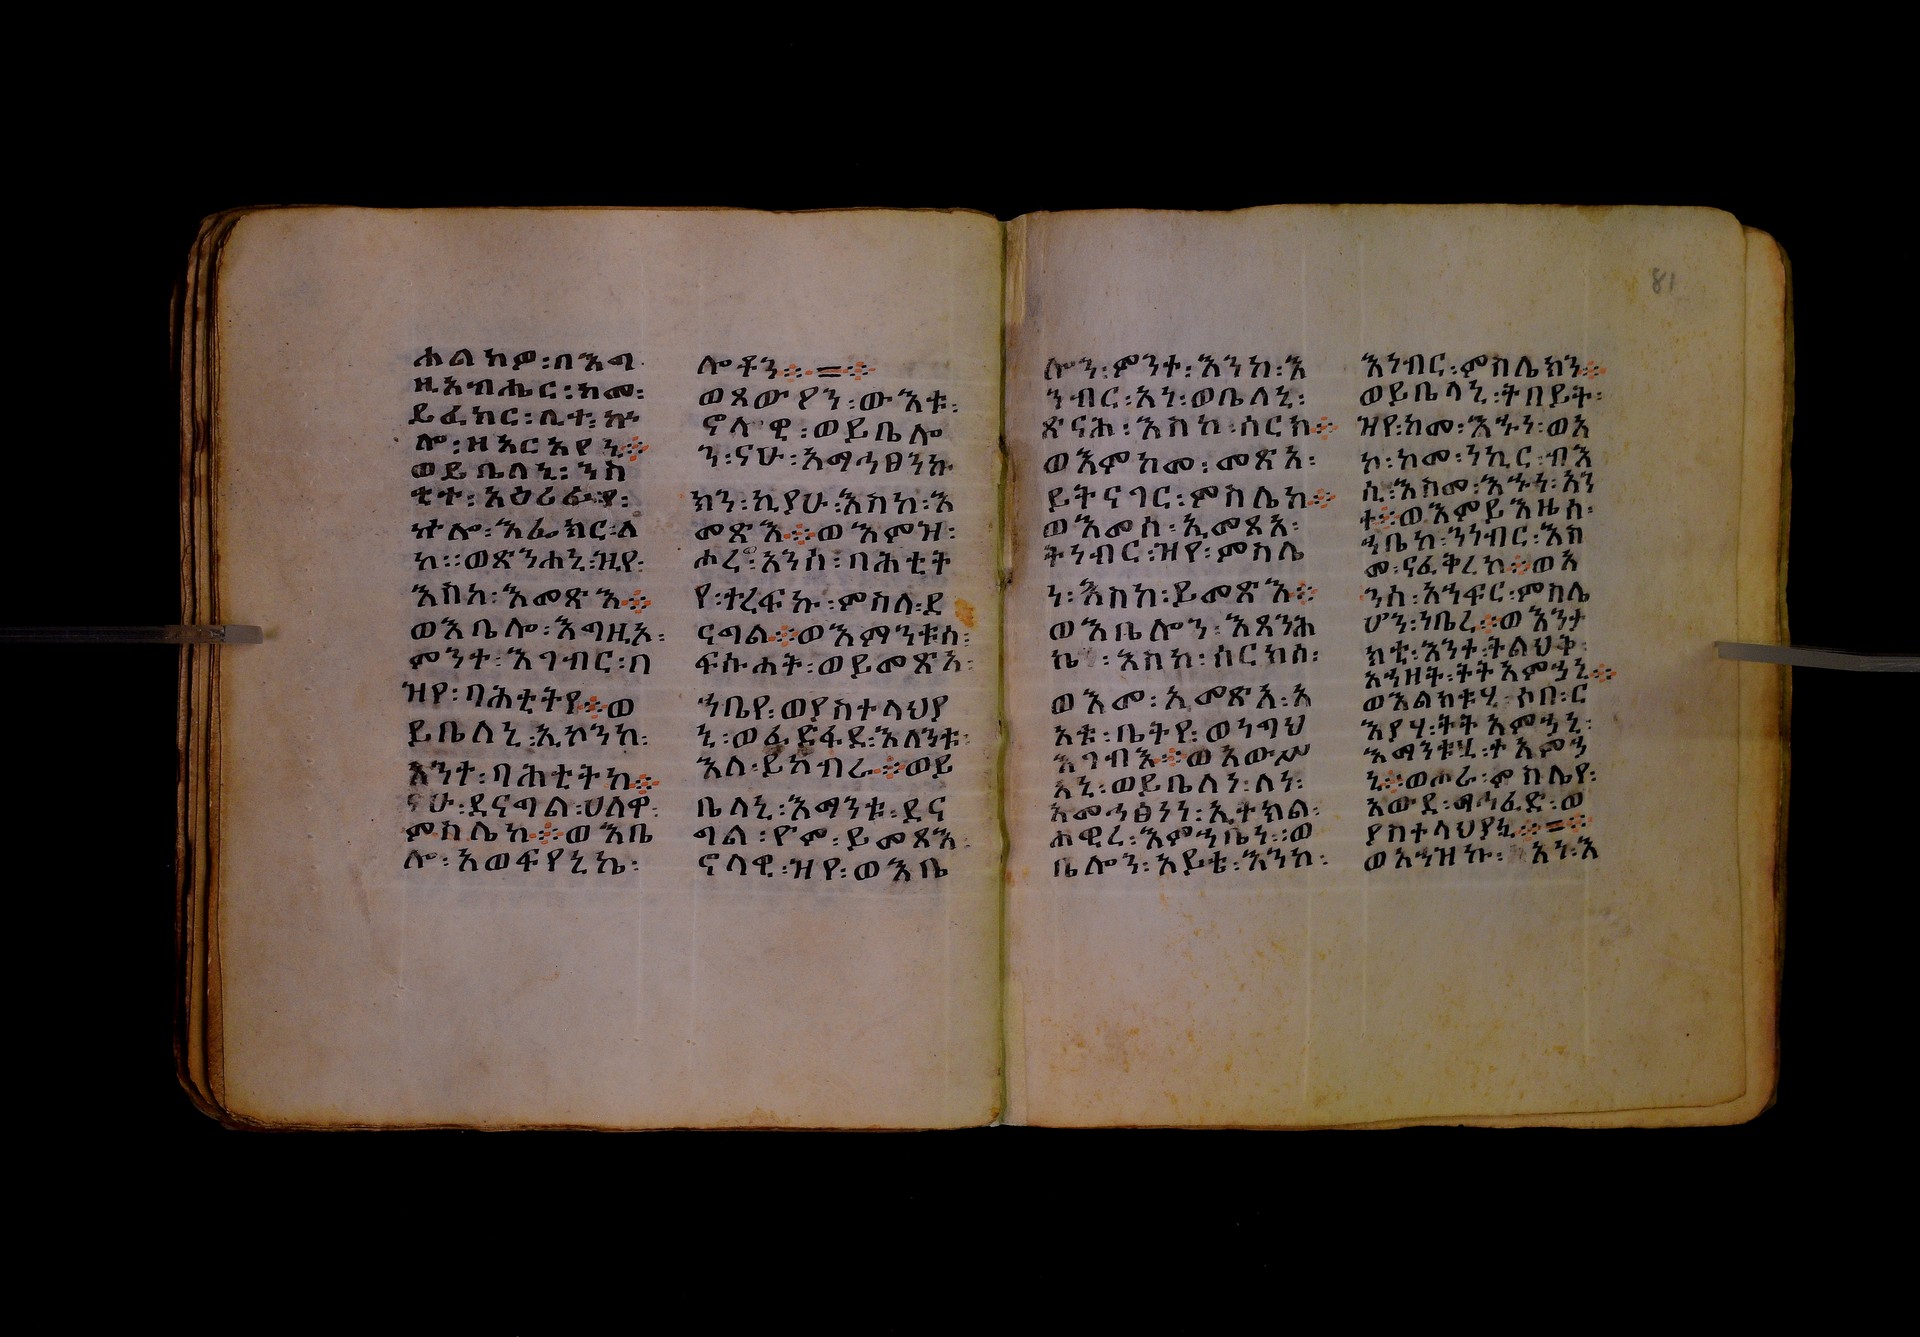 ሐልከዎ፡በእግ
ዚአብሔር፡ከመ፡
ይፈክር፡ሊተ፡ኵ
ሎ፡ዘአርአየኒ፨
ወይቤለኒ፡ንስ
ቲተ፡አዕሪፊየ፡
ኵሎ፡እፌክር፡ለ
ከ፡፡ወጽንሐኒ፡ዝየ፡
እስከ፡እመጽእ፨
ወእቤሎ፡እግዚእ፡
ምንተ፡እገብር፡በ
ዝየ፡ባሕቲትየ፨ወ
ይቤለኒ፡ኢኮንከ፡
አንተ፡ባሕቲትከ፨
ናሁ፡ደናግል፡ሀለዋ፡
ምስሌከ፨ወእቤ
ሎ፡አወፍየኒኬ፡
ሎቶን፨=፨
ወጸውዖን፡ውእቱ፡
ኖላዊ፡ወይቤሎ
ን፡ናሁ፡አማኅፀንኩ
ክን፡ኪያሁ፡እስከ፡እ
መጽእ፨ወእምዝ፡
ሖረ፡አንሰ፡ባሕቲት
የ፡ተረፍኩ፡ምስለ፡ደ
ናግል፨ወእማንቱሰ፡
ፍሱሐት፡ወይመጽእ፡
ኀቤየ፡ወያስተላህያ
ኒ፡ወፈድፋደ፡እለንቱ፡
እለ፡ይከብራ፨ወይ
ቤላኒ፡እማንቱ፡ደና
ግል፡ዮም፡ይመጽእ፡
ኖላዊ፡ዝየ፡ወእቤ
ሎን፡ምንተ፡እንከ፡እ
ንብር፡አነ፡ወቤለኒ፡
ጽናሕ፡እስከ፡ሰርክ፨
ወእምከመ፡መጽአ፡
ይትናገር፡ምስሌከ፨
ወእመሰ፡ኢመጽአ፡
ትነብር፡ዝየ፡ምስሌ
ነ፡እስከ፡ይመጽእ፨
ወእቤሎን፡እጸንሕ
ኬ፡እስከ፡ሰርክሰ፡
ወእመ፡ኢመጽአ፡አ
አቱ፡ቤትየ፡ወንግህ
እገብእ፨ወአውሥ
አኒ፡ወይቤለን፡ለነ፡
አመኅፀነነ፡ኢትክል፡
ሐዊረ፡እምኀቤነ፡፡ወ
ቤሎን፡አይቴ፡እንከ፡
እነብር፡ምስሌክን፨
ወይቤላኒ፡ትበይት፡
ዝየ፡ከመ፡እኁነ፡ወአ
ኮ፡ከመ፡ነኪር፡ብእ
ሲ፡እስመ፡እኁነ፡አን
ተ፨ወእምይእዜሰ፡
ኀቤከ፡ንነብር፡እስ
መ፡ናፈቅረከ፨ወአ
ንሰ፡አኀፍር፡ምስሌ
ሆን፡ነቢረ፨ወእንታ
ክቲ፡እንተ፡ትልህቅ፡
አኀዘት፡ትት አምኃኒ፨
ወእልክቱሂ፡ሶበ፡ር
እያሃ፡ትት አምኃኒ፡
እማንቱሂ፡ተአምኃ
ኒ፨ወሖራ፡ምስሌየ፡
አውደ፡ማኅፈድ፡ወ
ያስተላህያኒ፨=፨
ወአኀዝኩ፡አነ፡እ
81